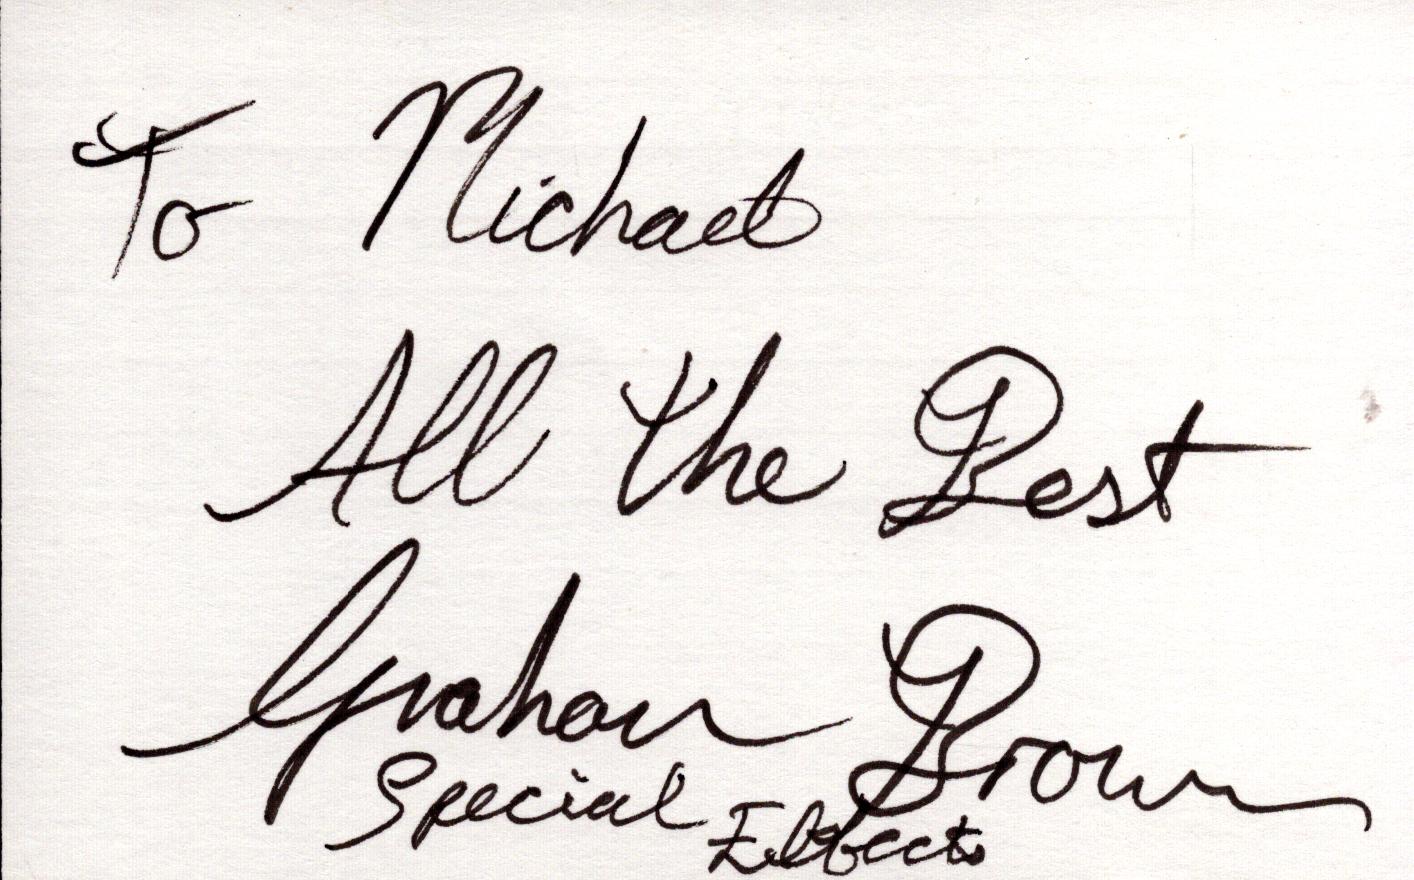 To Michael
All the Best
Graham Brown
Special Effects